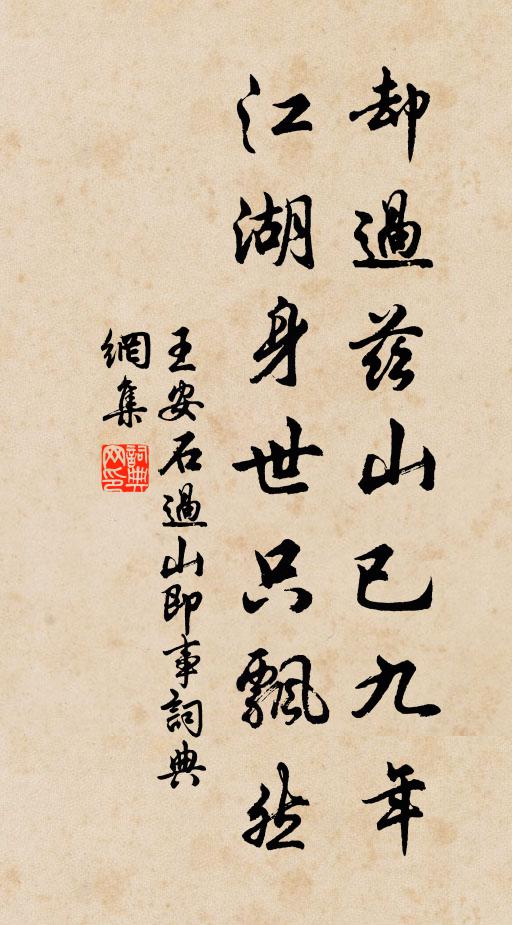 却過茲山已九年
江湖身世只飄然
王安石過山即事詞典
網集
詞典網印